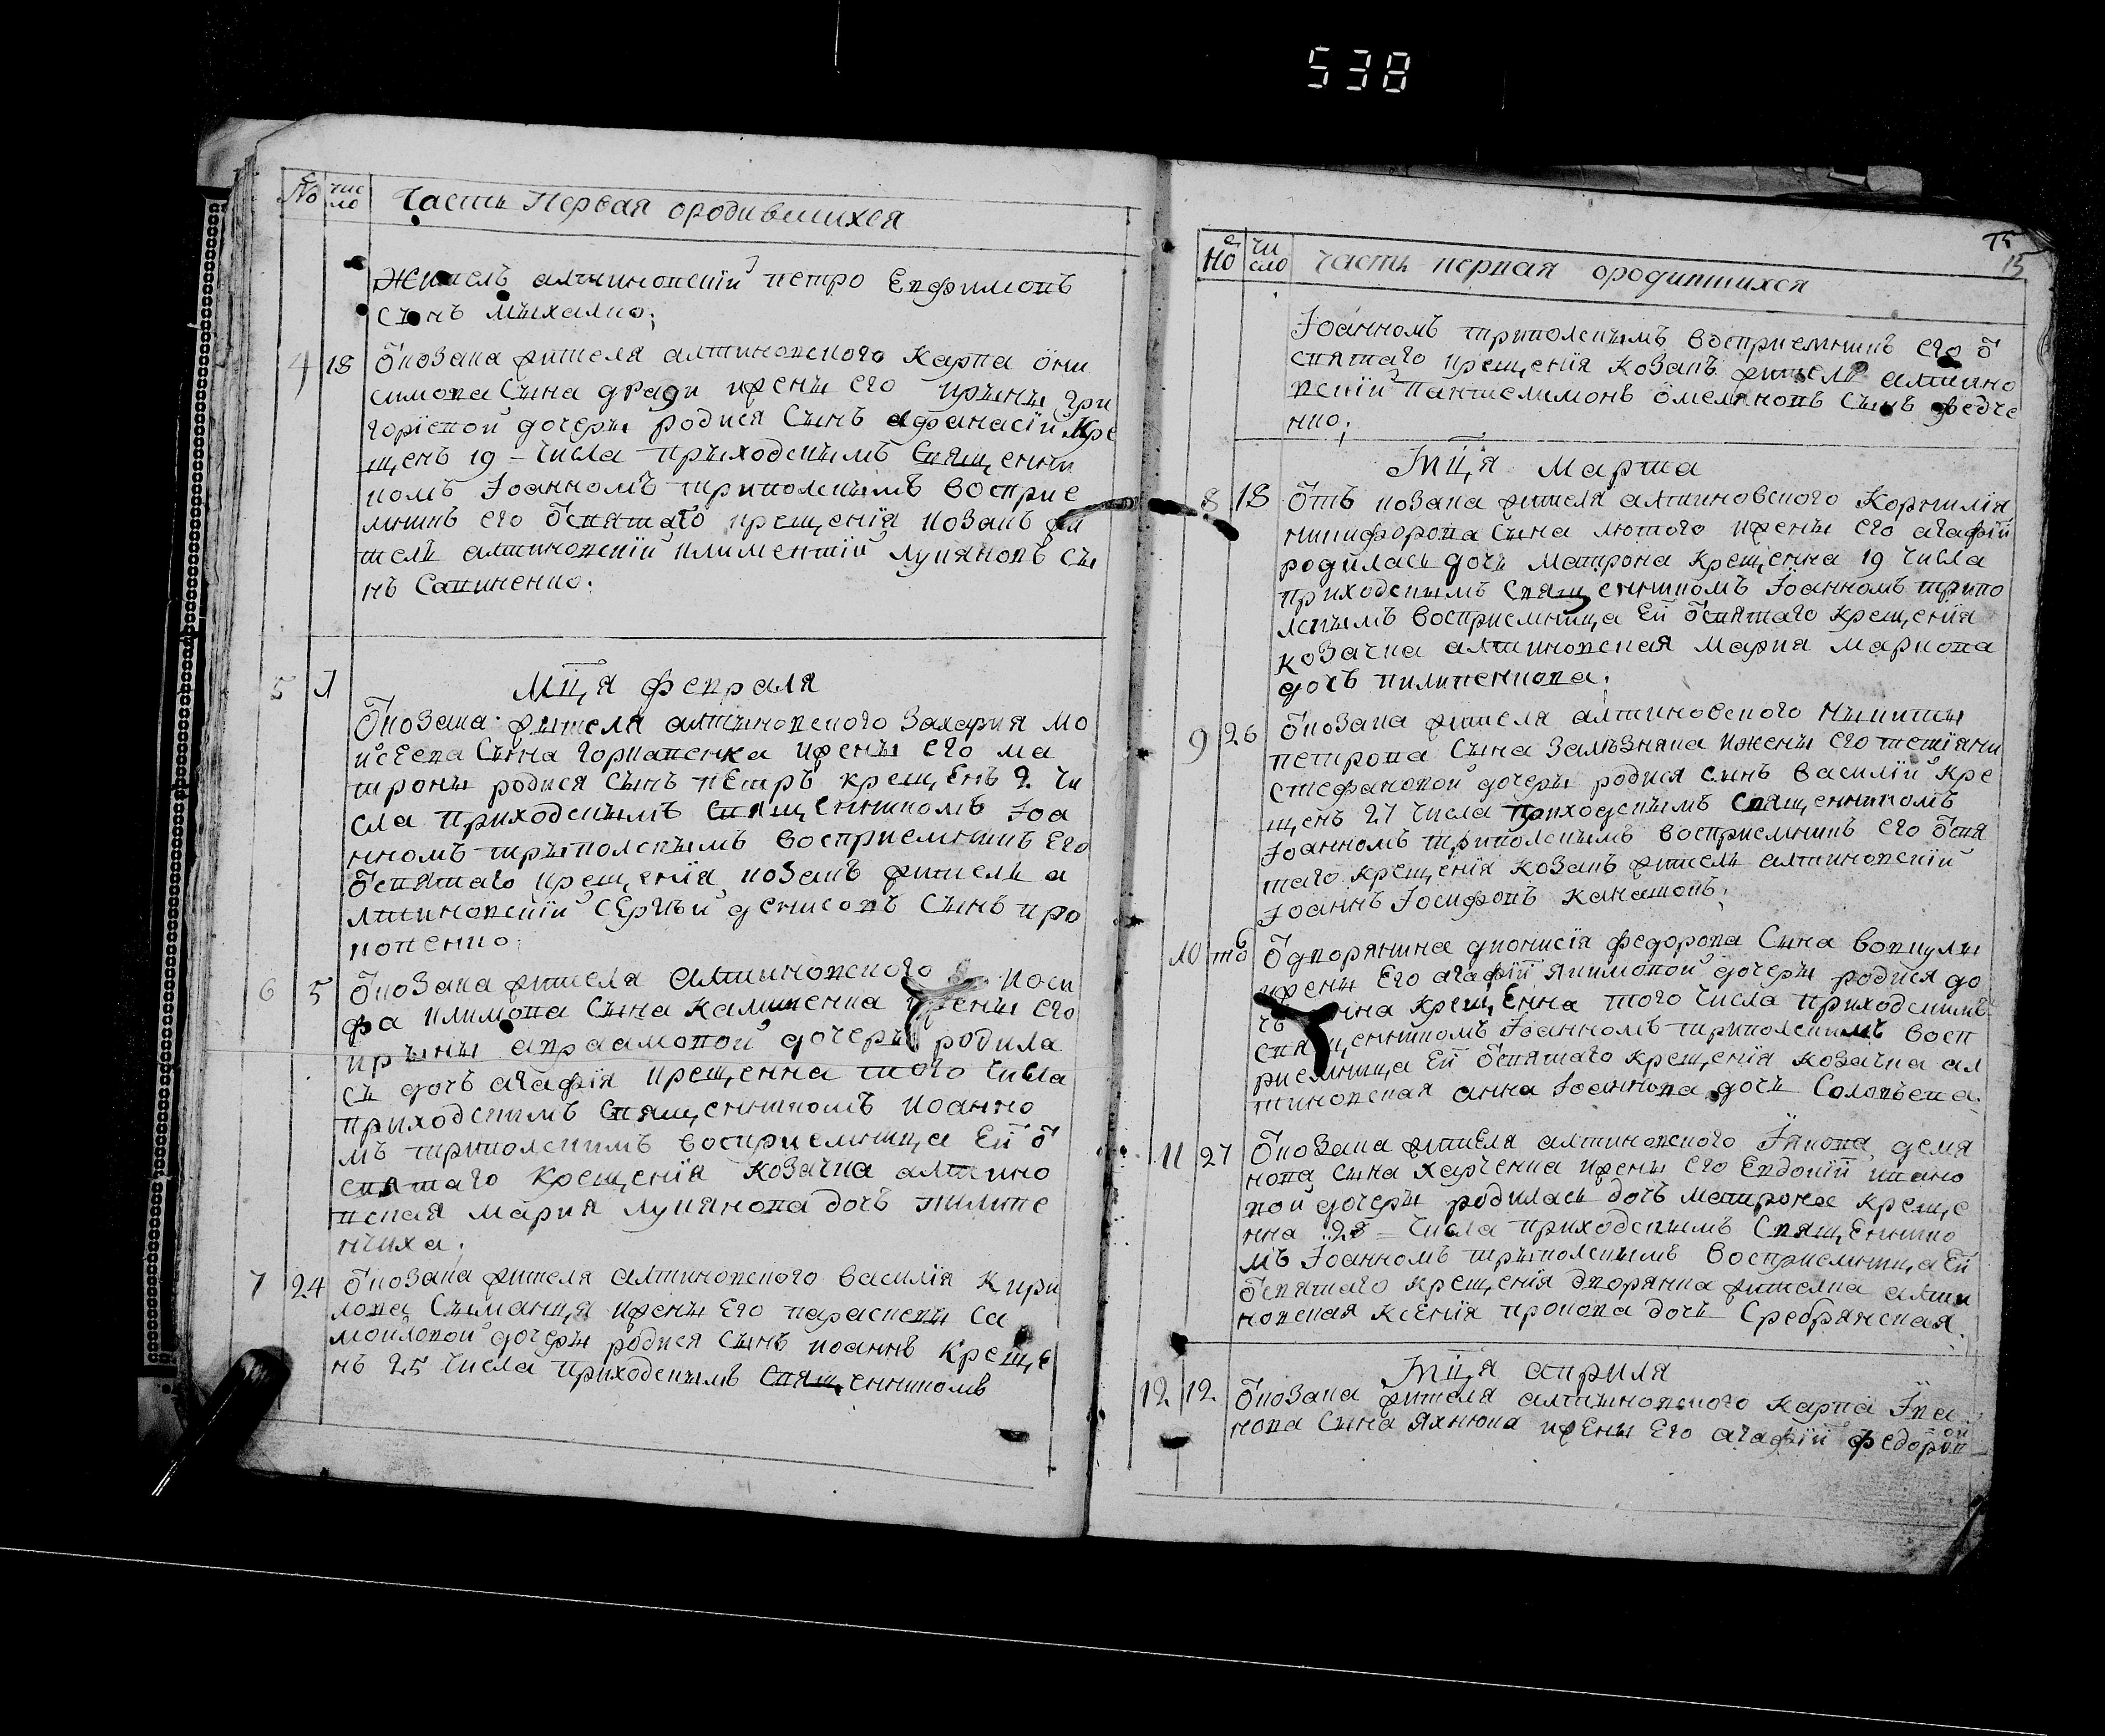 538
№ чис
ло
Часть Первая ородившихся
Житель алтиновскій петро Евфимовъ
сынъ михално;
4 18 ѿ козака жителя алтиновского Карпа они
симова Сына драги ижены его ирыны гри
горіевой дочеры родися Сынъ афанасій Кре
щенъ 19 = Числа прыходскымъ Священни
комъ Іоанномъ триполскымъ Восприе
мникъ его ѿ святаго крещенія козакъ жи
тель алтиновскій климентій лукяновъ Сы
нъ Савиченко.
5 1 Мц,я февраля
ѿ козака жителя алтыновского Захарія Мо
исеева Сына горкавенка ижены его ма
троны родися Сынъ пЕтръ крещЕнъ 2 Чи
сла приходскымъ СвящЕнникомъ Іоа
нномъ трыполскымъ восприемникъ Его
ѿ святаго крещенія козакъ житель а
лтиновскій Сергѣй денисовъ Сынъ про
копенко.
6 5 ѿ козака жителя Алтиновского Иоси
фа климова Сына Калиненка ижены его
ирыны авраамовой дочеры родила
сь дочъ агафія крещенна того Числа
приходскимъ Священникомъ Иоанно
мъ триполскимъ восприемница Ей ѿ
святаго Крещенія козачка алтино
вская Мария лукянова дочъ пилипе
нчиха.
7 24 ѿ козака жителя алтиновского Василія Кири
лова Сыманця ижены Его параскевы Са
мойловой дочеры родися Сынъ иоаннъ Креще
нъ 25 Числа приходскымъ Священникомъ
15
15
Но Чи
сло Часть первая ородившихся
Іоанномъ триполскымъ Восприемникъ его ѿ
святаго крещенія козакъ житель алтино
вскій пантелимонъ омеляновъ Сынъ федче
нко;
Мц,я Марта
8 18 Отъ козака жителя алтиновского Корнилія
никифорова Сына лютого ижены его агафій
родилась дочъ Матрона Крещенна 19 Числа
приходскымъ Священникомъ Іоанномъ трипо
лскымъ восприемница Ей ѿ святаго крещенія
козачка алтиновская Мария Маркова
дочъ пилипенкова.
9 26 ѿ козака жителя алтиновского Ныкиты
петрова Сына Залѣзняка ижены его тетіяни
стефановой дочеры родися сынъ Василій Кре
щенъ 27 Числа приходскымъ Священникомъ
Іоанномъ триполскымъ восприемникъ его ѿ свя
таго крещенія козакъ житель алтиновскій
Іоаннъ Іосифовъ Канашовъ.
10 то ѿ дворянина дионисія федорова Сына вовкулы
ижены Его агафій якимовой дочеры родися до
чъ крещЕнна того Числа приходскимъ
Священникомъ Іоанномъ триполскимъ восп
риемница Ей ѿ святаго крещенія козачка ал
тиновская анна Іоаннова дочъ Соловѣева.
11 27 ѿ козака жителя алтиновского Якова демя
нова Сына харченка ижены его Евдокій ивано
вой дочеры родилась дочъ матрона креще
нна 28 = Числа приходскымъ СвящЕннико
мъ Іоанномъ трыполскымъ восприемница Ей
ѿ святаго крещенія дворянка жителка алти
новская Ксенія прокопа дочъ Сребрянская.
Мц,я априля
12 12 ѿ козака жителя алтыновского Карпа Ива
нова Сына Яхнюка ижены Его агафій федоров
ой